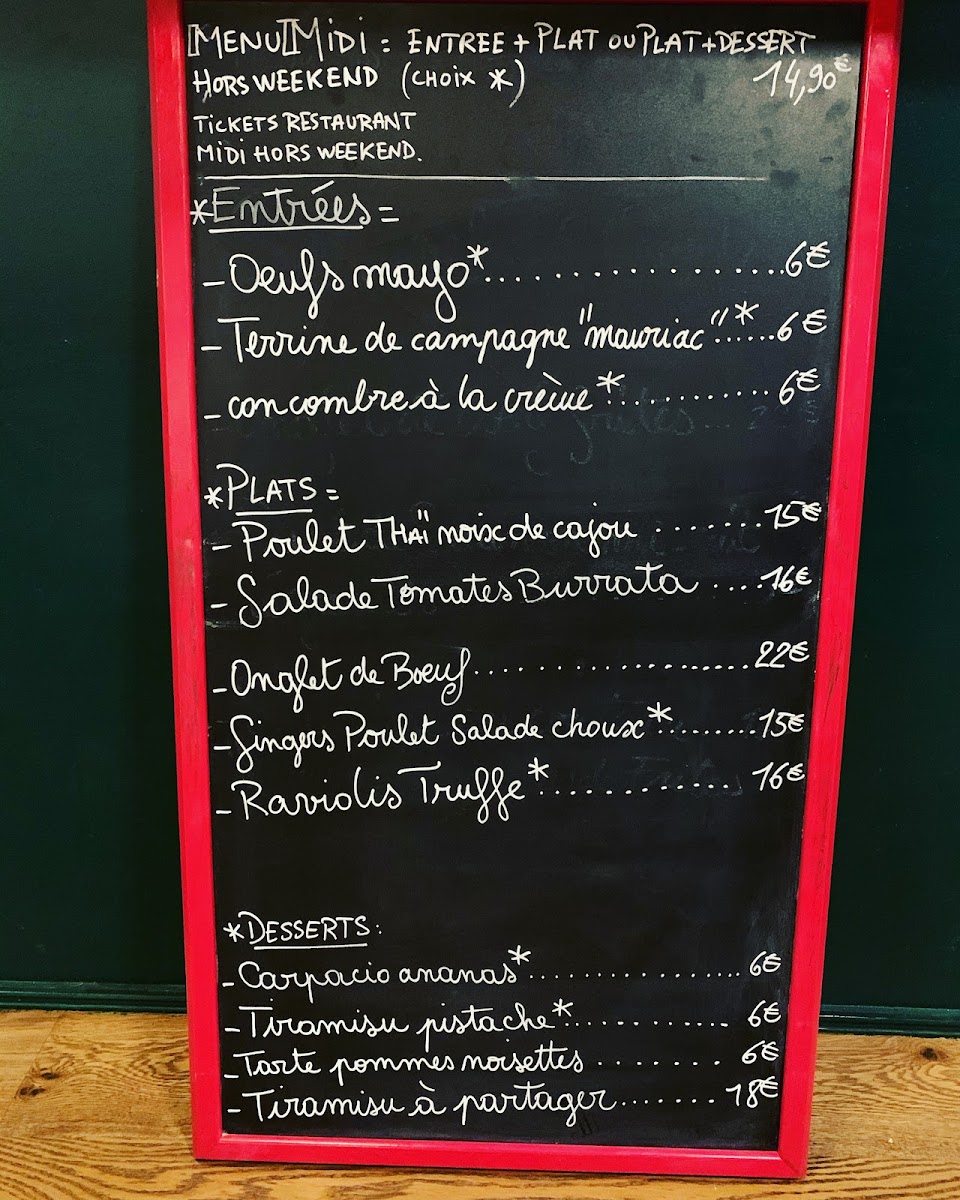 MENU MIDI : ENTREE + PLAT OU PLAT + DESSERT
HORS WEEKEND (CHOIX *) 14,90€
TICKETS RESTAURANT
MIDI HORS WEEKEND.
*Entrées =
- Oeufs mayo*..................6€
- Terrine de campagne "mauriac"*......6€
- concombre à la crème*............6€
*PLATS =
- Poulet THAÏ noix de cajou ........15€
- Salade Tomates Burrata ....16€
- Onglet de Boeuf......................22€
- Gingers Poulet Salade choux*.........15€
- Raviolis Truffe*............. 16€
*DESSERTS :
- Carpacio ananas*.................. 6€
- Tiramisu pistache*............. 6€
- Tarte pommes noisettes ......... 6€
- Tiramisu à partager........ 18€